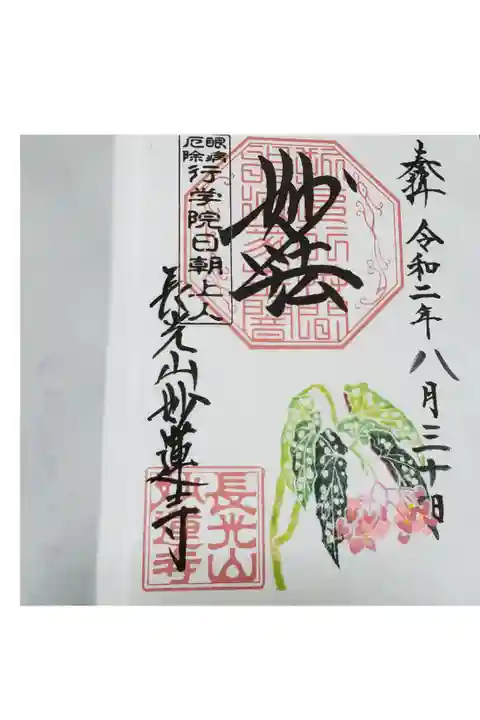 奉拝 令和二年八月三十日
妙法
眼病
厄除
行学院日朝上人
長光山妙蓮寺
長光山
妙蓮寺